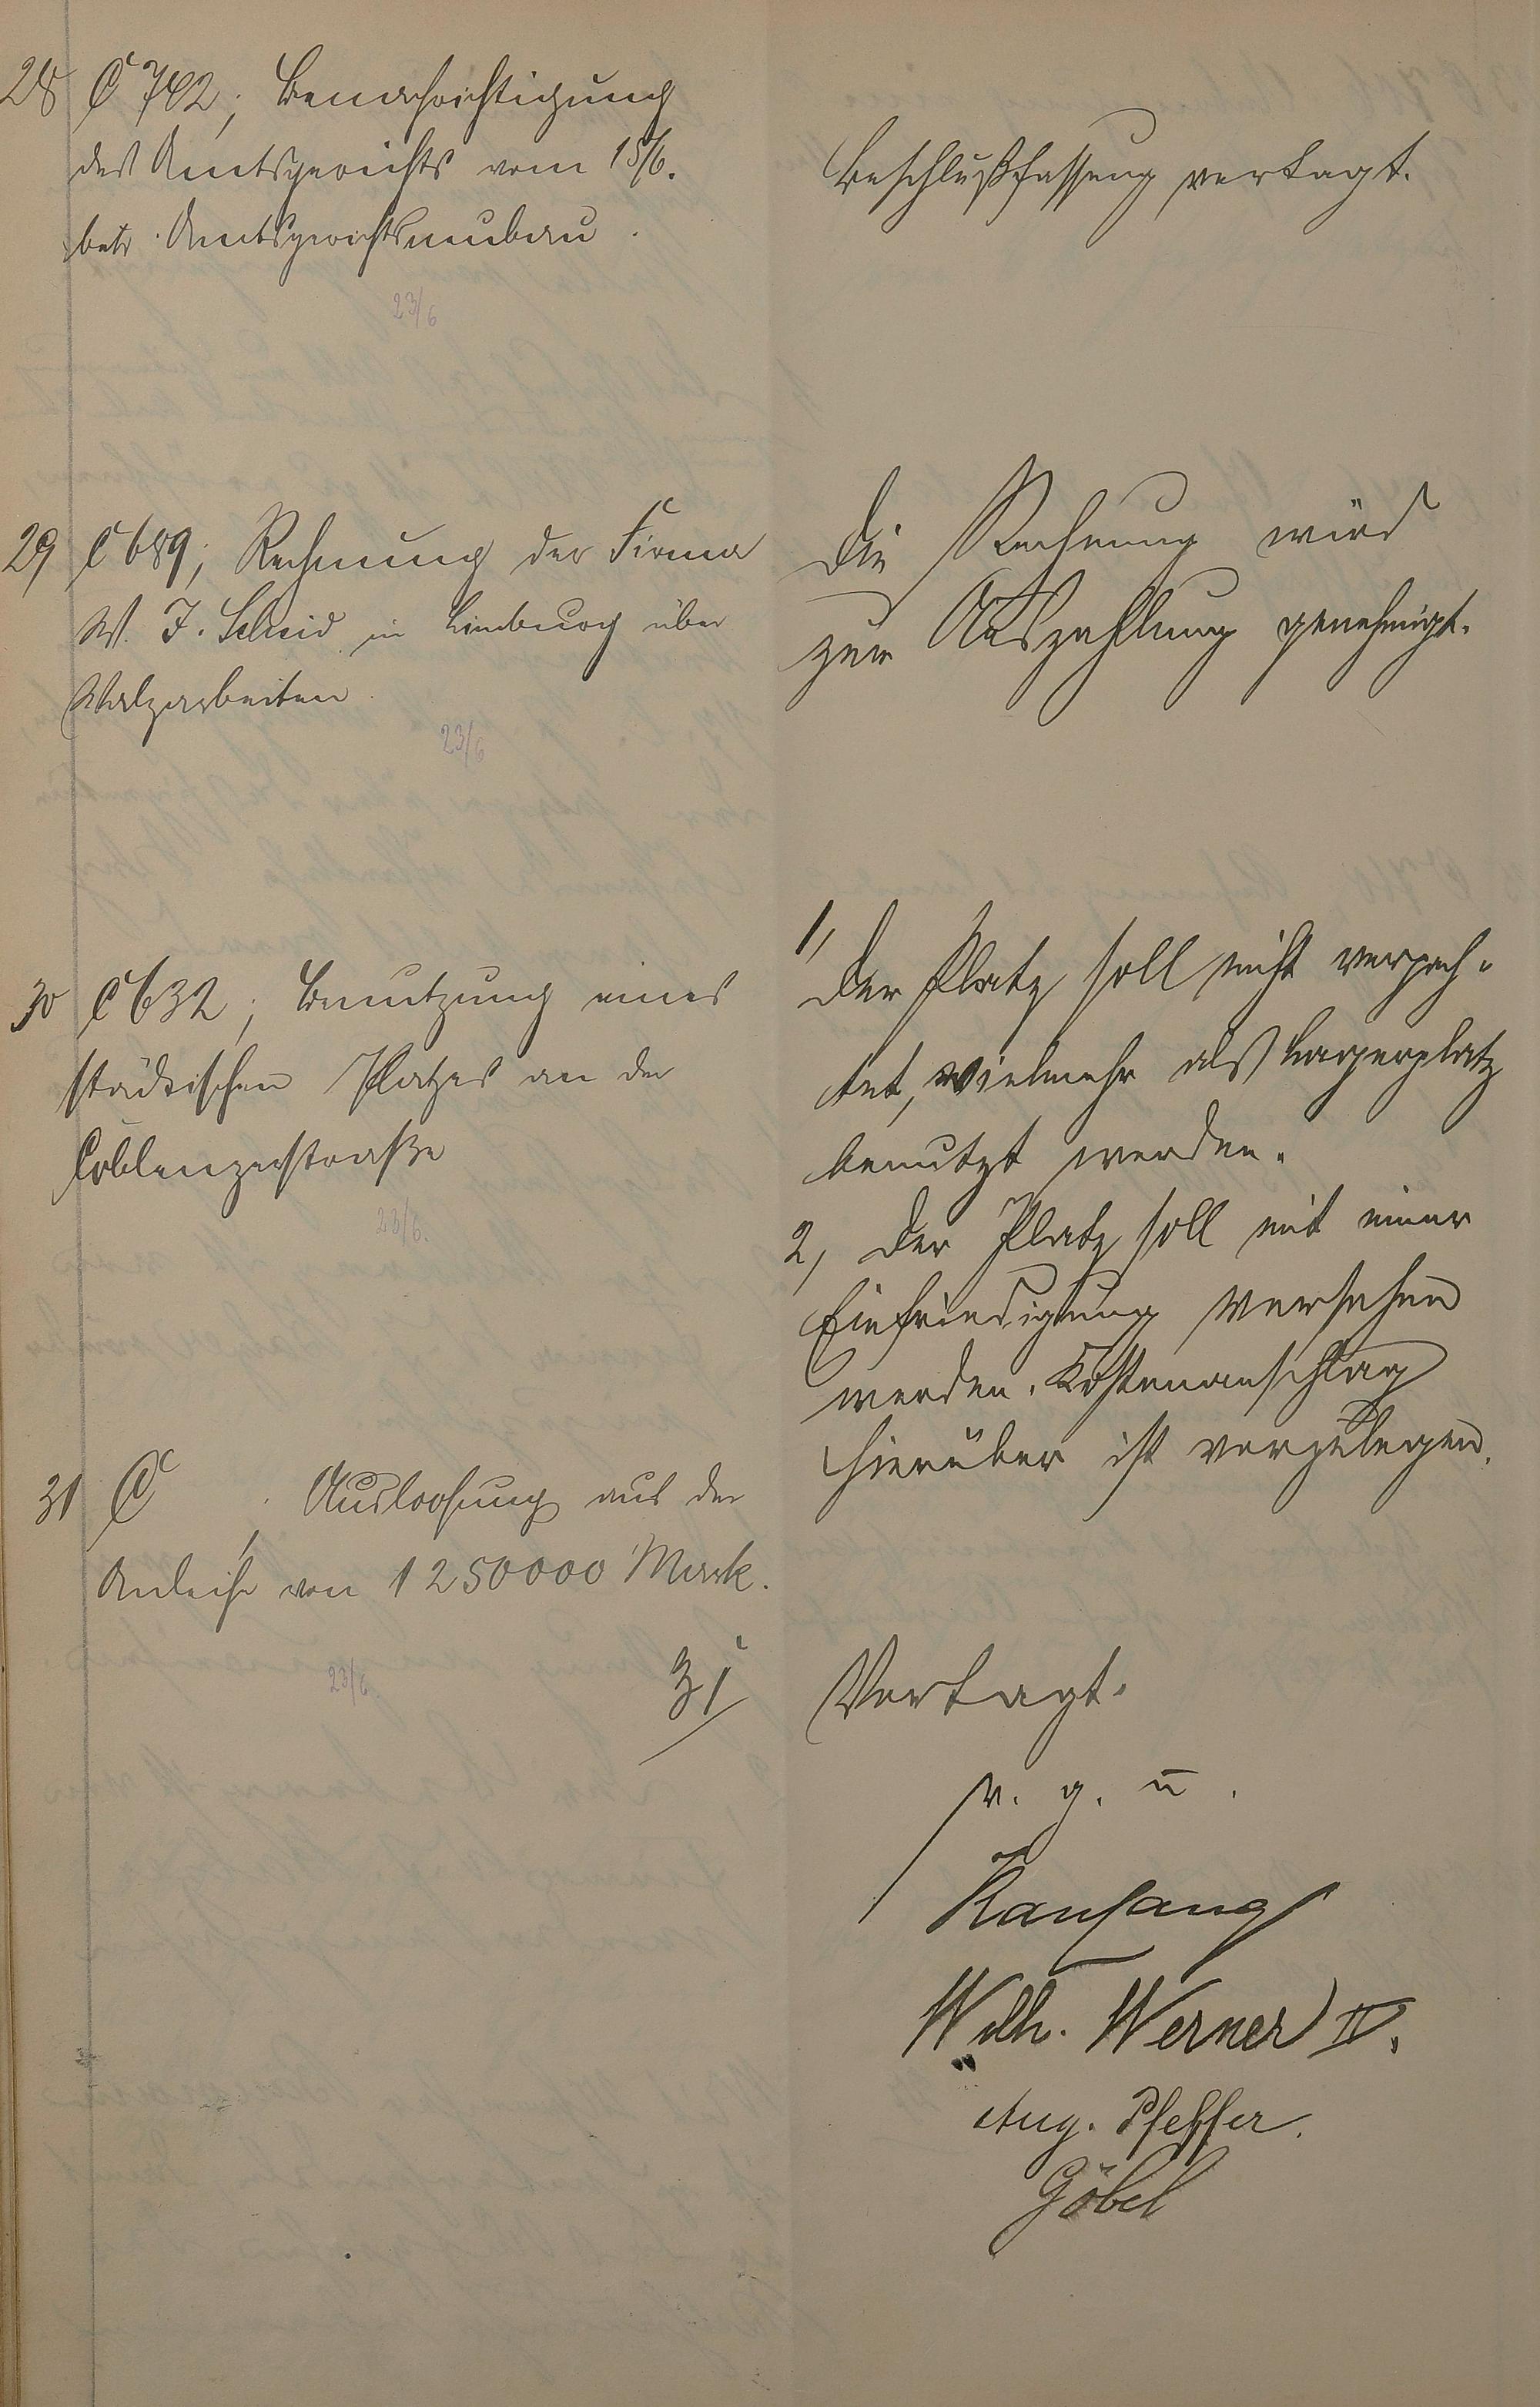 28 C 742; Benachrichtigung
des Amtsgerichts vom 15/6.
betr. Amtsgerichtsneubau.
23/6
Beschlußfassung vertagt.
29 C 689; Rechnung der Firma
W. J. Scheid in Limburg über
Walzarbeiten
23/6
Die Rechnung wird
zur Auszahlung genehmigt.
30 C 632; Benutzung eines
städtischen Platzes an der
Coblenzerstraße
23/6.
1,
Der Platz soll nicht verpach-
tet, vielmehr als Lagerplatz
benutzt werden.
2, Der Platz soll mit einer
Einfriedigung versehen
werden. Kostenanschlag
hierüber ist vorzulegen.
31 C ; Ausloosung aus der
Anleihe von 1250000 Mark.
23/6.
31
Vertagt.
v. g. u.
Kauhaus
Wilh. Werner II.
Aug. Pfeffer.
Göbel